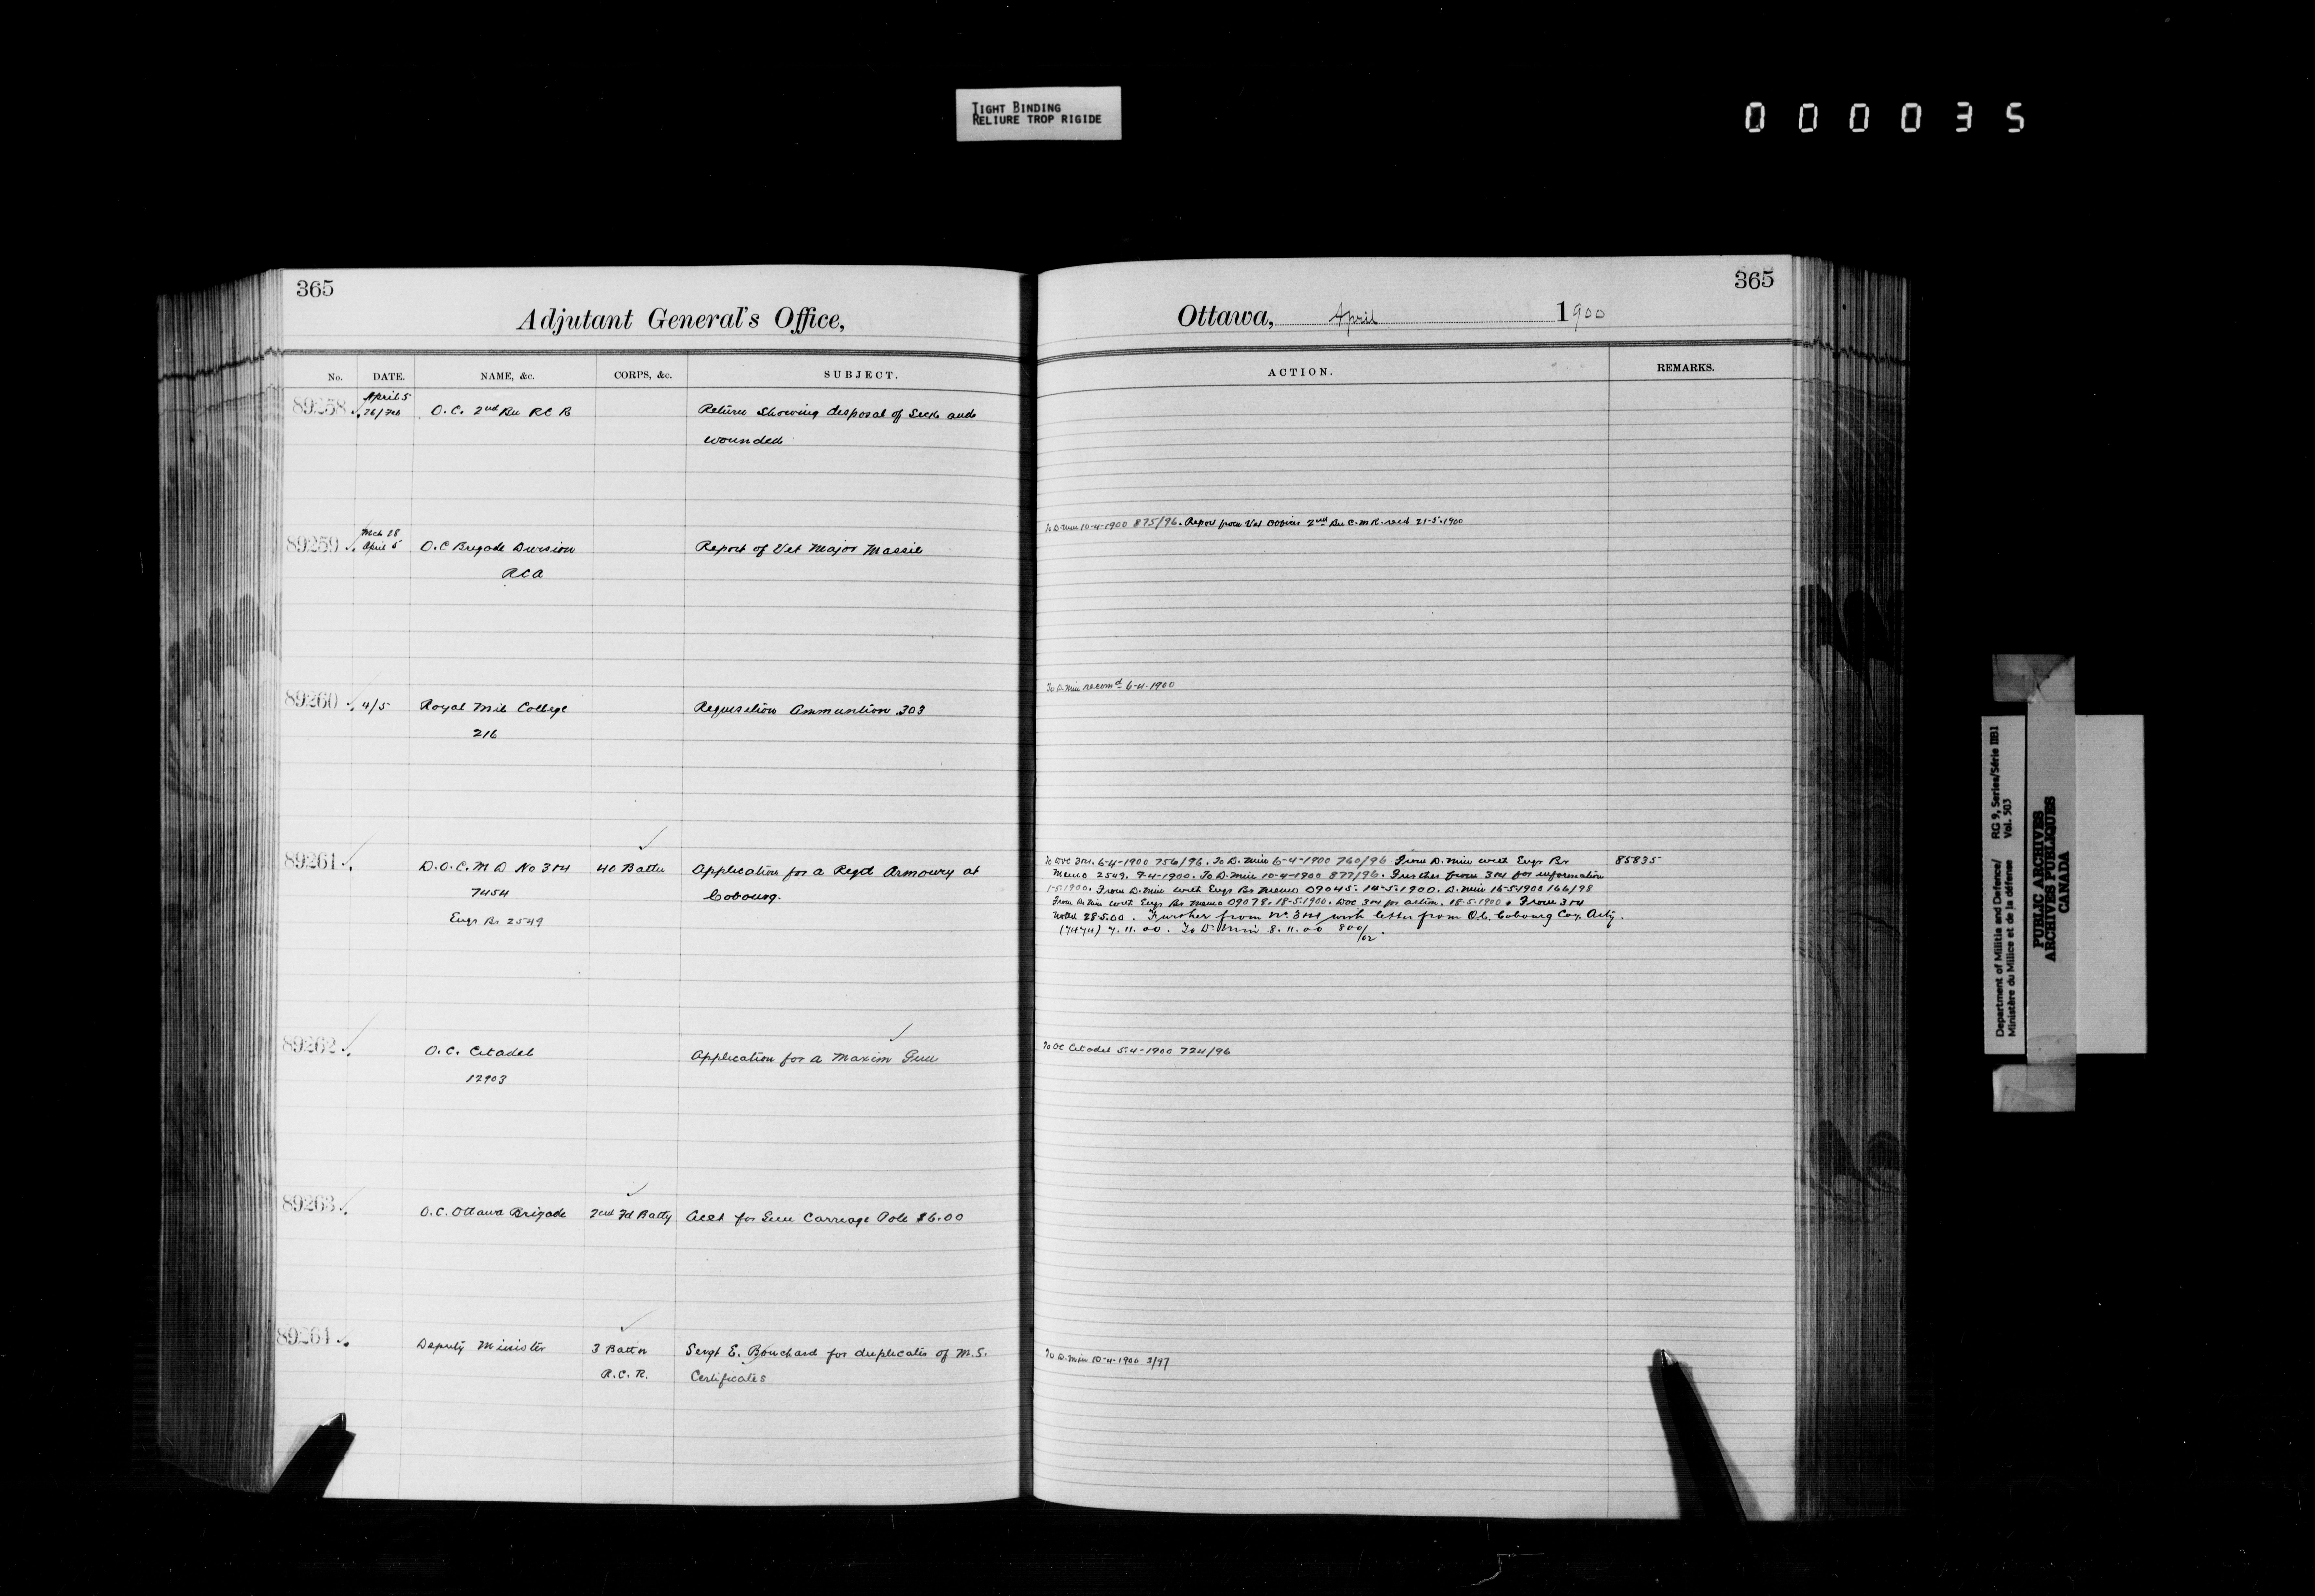 TIGHT BINDING
RELIURE TROP RIGIDE
000035
365
Adjutant General's Office,
No. DATE. NAME, &c. CORPS, &c. SUBJECT.
89258 April 5 26/Feb O.C. 2nd Bn RCR Return Showing disposal of Sick and
wounded
89259 Mch 28 April 5 O.C Brigade Division Report of Vet Major Massie
RCA
89260 4/5 Royal Mil College Requisition Ammunition .303
216
89261 D.O.C. M D No 3 & 4 40 Battn Application for a Regtl Armoury at
7454 Cobourg.
Engr Br 2549
89262 O.C. Citadel Application for a Maxim Gun
12903
89263 O.C. Ottawa Brigade 2nd Fd Batty Acct for Gun Carriage Pole $6.00
89264 Deputy Minister 3 Battn Sergt E. Bouchard for duplicates of M.S.
R.C.R. Certificates
365
Ottawa, April 1900
ACTION. REMARKS.
To D. Min 10-4-1900 875/96. Report from Vet 2nd Bn C.M.R. recd 21-5-1900
To D. Min recomd 6-4-1900
To DOC 3&4. 6-4-1900 756/96. To D. Min 6-4-1900 760/96 From D. Min with Engr Br 85835
Memo 2549. 7-4-1900. To D. Min 10-4-1900 877/96. Further from 3&4 for information
1-5-1900. From D. Min with Engr Br Memo 09045. 14-5-1900. D. Min 16-5-1900 166/98
From D. Min with Engr Br Memo 09078. 18-5-1900. DOC 3&4 for action. 18-5-1900. From 3&4
noted 28.5.00. Further from No. 3&4 with letter from O.C. Cobourg Coy. Arty.
(7474) 7.11.00. To D. Min 8.11.00 800/02.
To OC Citadel 5-4-1900 724/96
To D. Min 10-4-1900 3/97
Department of Militia and Defence/ RG 9, Series/Série IIB1
Ministère du Milice et de la défense Vol. 503
PUBLIC ARCHIVES
ARCHIVES PUBLIQUES
CANADA